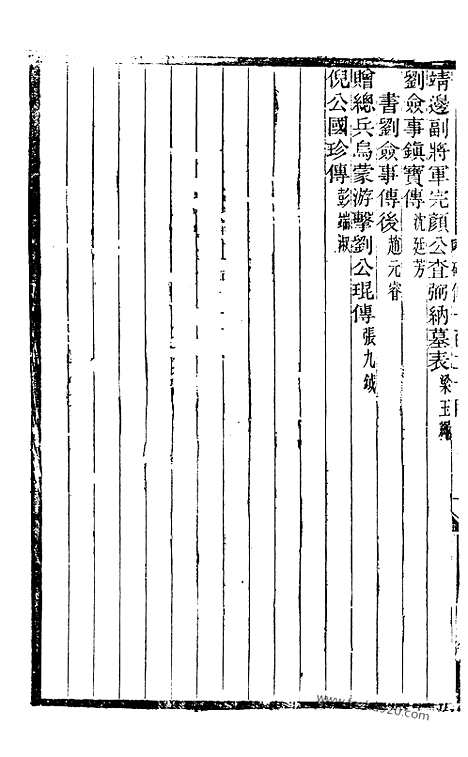 靖邊副將軍完顏公查弼納墓表梁玉繩
劉僉事鎮寶傳沈廷芳
書劉僉事傳後趙元睿
贈總兵烏蒙游擊劉公琨傳張九鉞
倪公國珍傳彭端淑